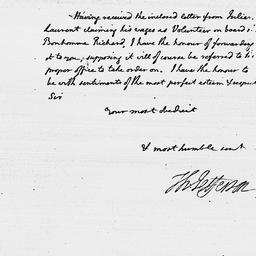 Having received the inclosed letter from Julien
Laurent claiming his wages as Volunteer on board
Bonhomme Richard, I have the honour of forwarding
it to you, supposing it will of course be referred to
proper office to take order on. I have the honour to
be with sentiments of the most perfect esteem & respect
Sir
Your most obedient
& most humble servt
Th: Jefferson